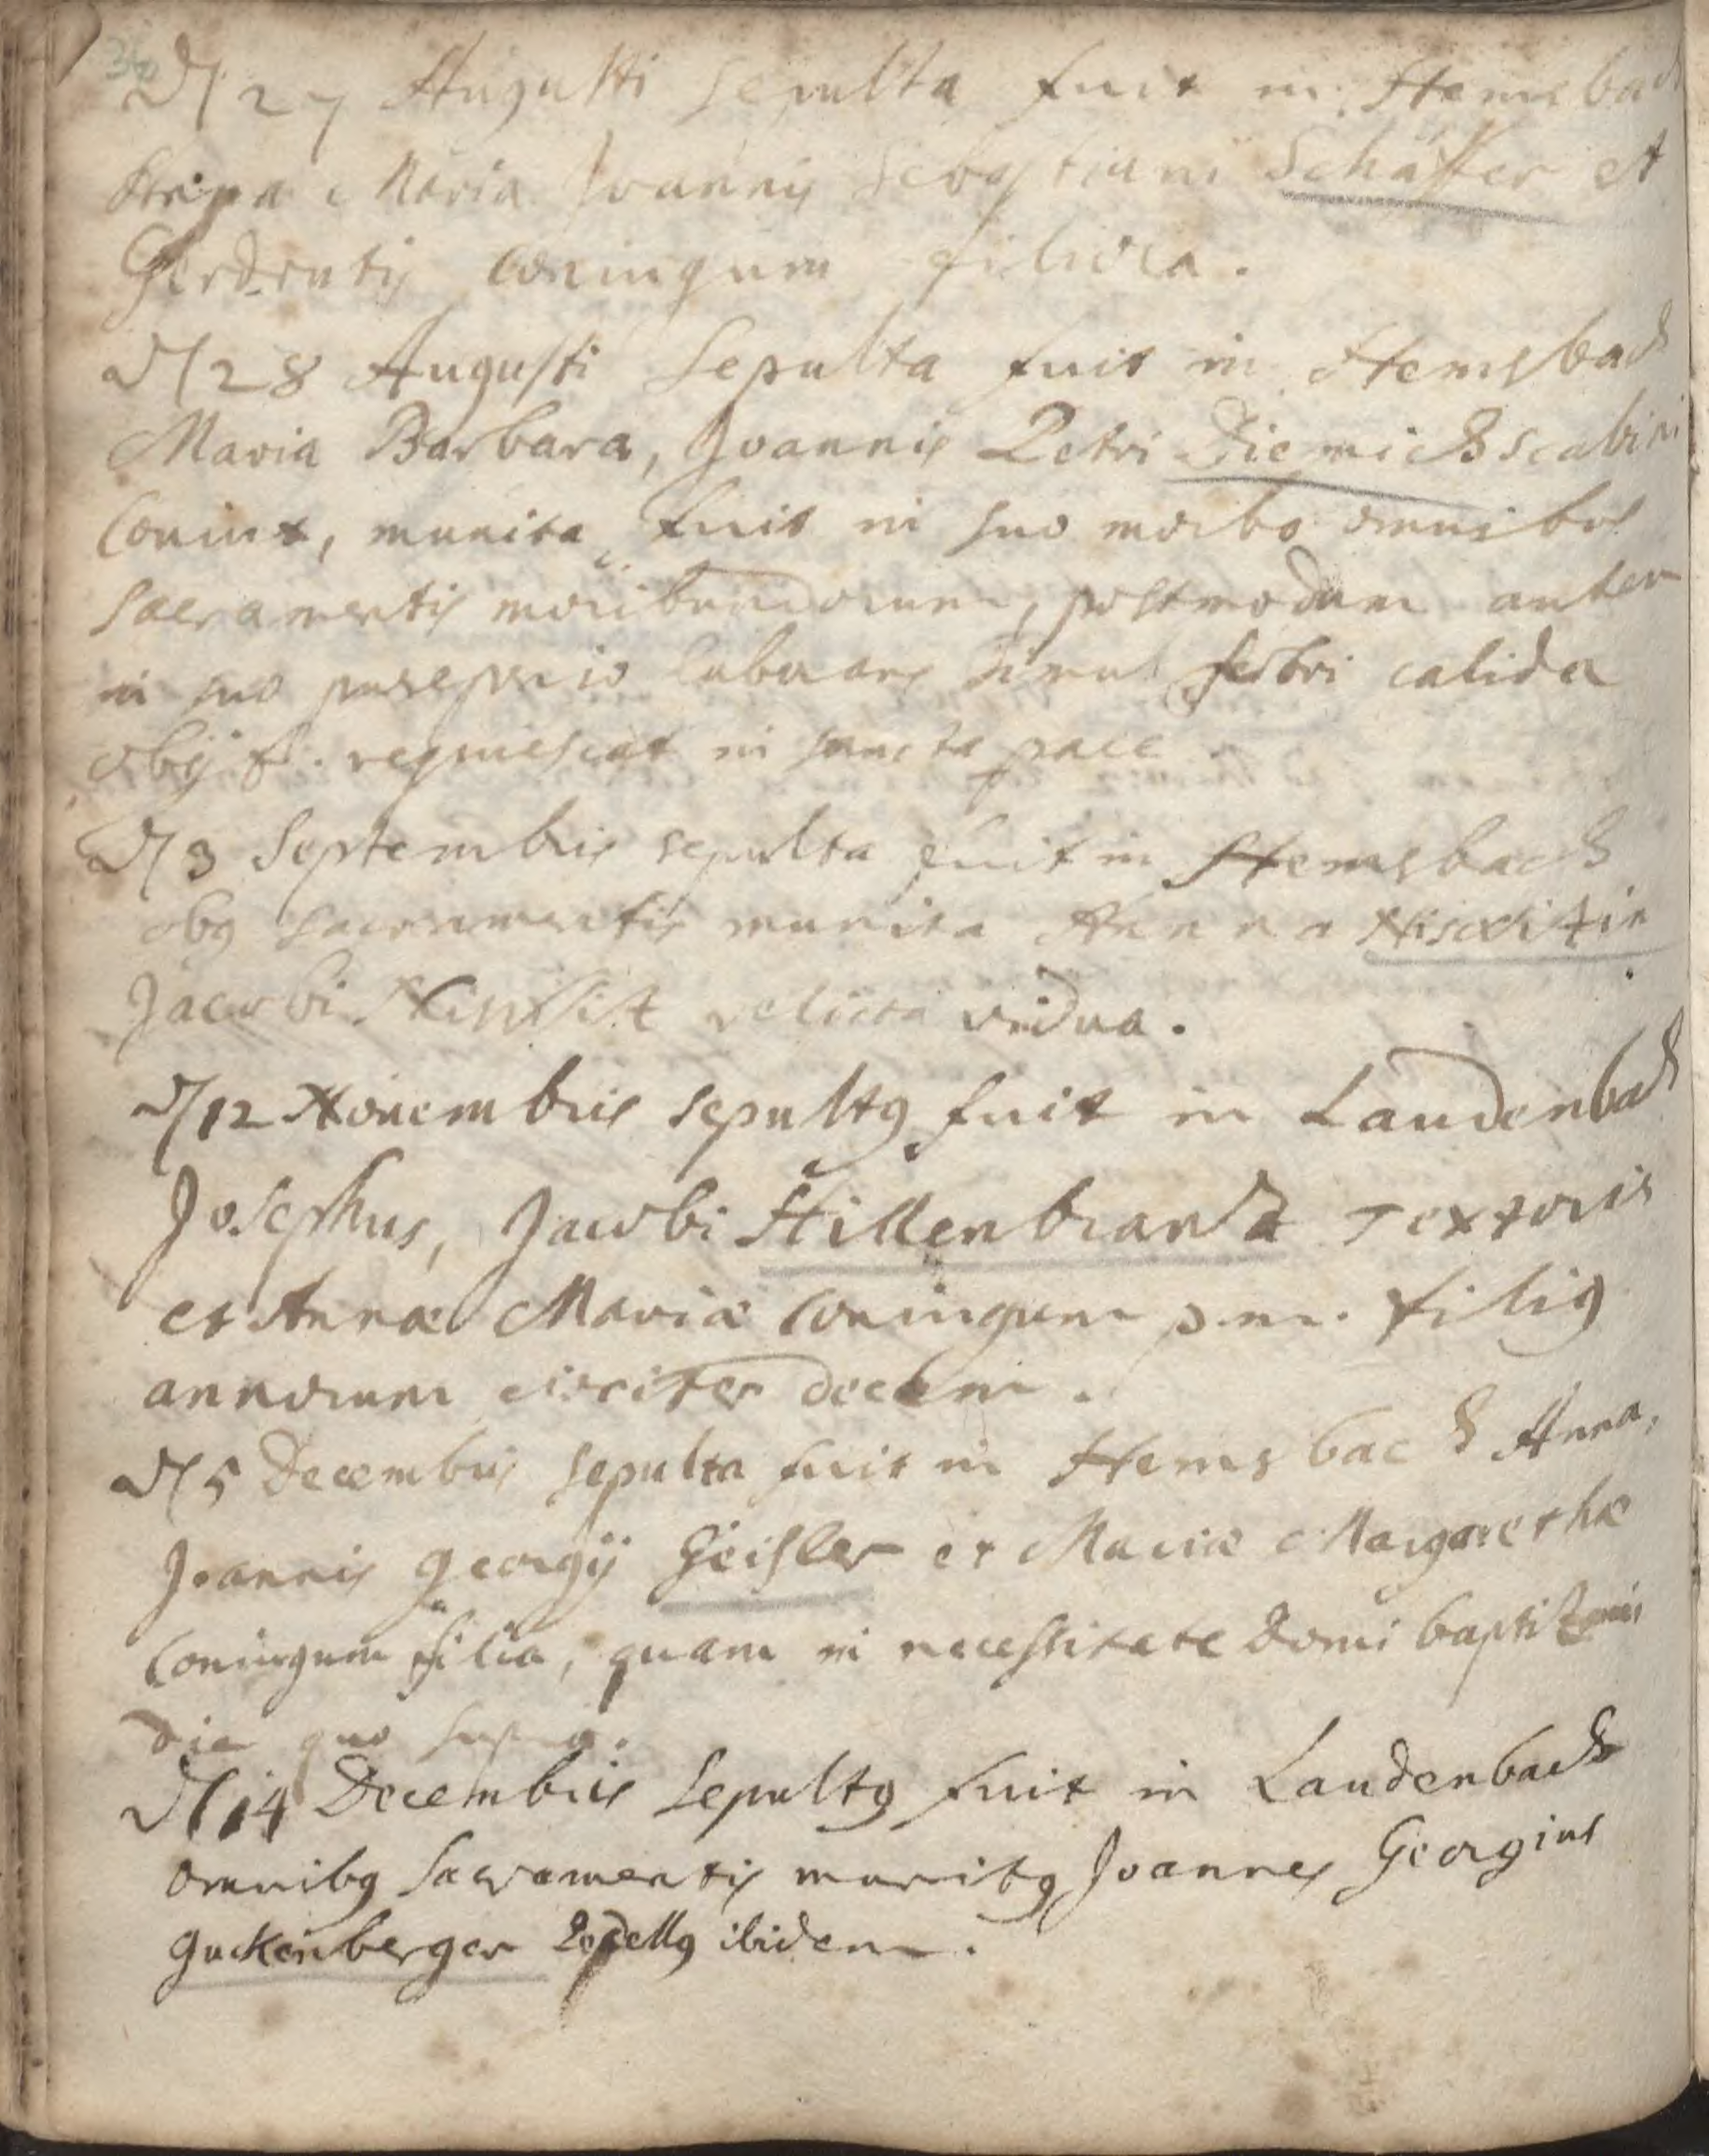 d 27 Augusti sepulta fuit in Hemsbach
Anna Maria Joannis Sebastiani Schäffer et
Gerdrutis coniugum filiola.
d 28 Augusti sepulta fuit in Hemsbach
Maria Barbara, Joannis Petri Diemich scabini
coniux, munita fuit in suo morbo omnibus
sacramentis moribundorum, postmodum autem
in suo puerperio laborans simul febri calida
obijt. requiescat in sancta pace.
d 3 Septembris sepulta fuit in Hemsbach
obq sacramentis munita Anna
Jacobi relicta vidua.
d 12 Novembris sepultq fuit in Laudenbach
Josephus, Jacobi Hillenbrandt Textoris
et Annæ Mariæ coniugum p.m. filiq
annorum circiter decem.
d 5 Decembris sepulta fuit in Hemsbach Anna,
Joannis Georgij Geisler et Mariæ Margarethæ
coniugum filia, quam in necessitate domi baptizavi
die quo supra.
d 14 Decembris sepultq fuit in Laudenbach
omnibq sacramentis munitq Joannes Georgius
Guckenberger ibidem.